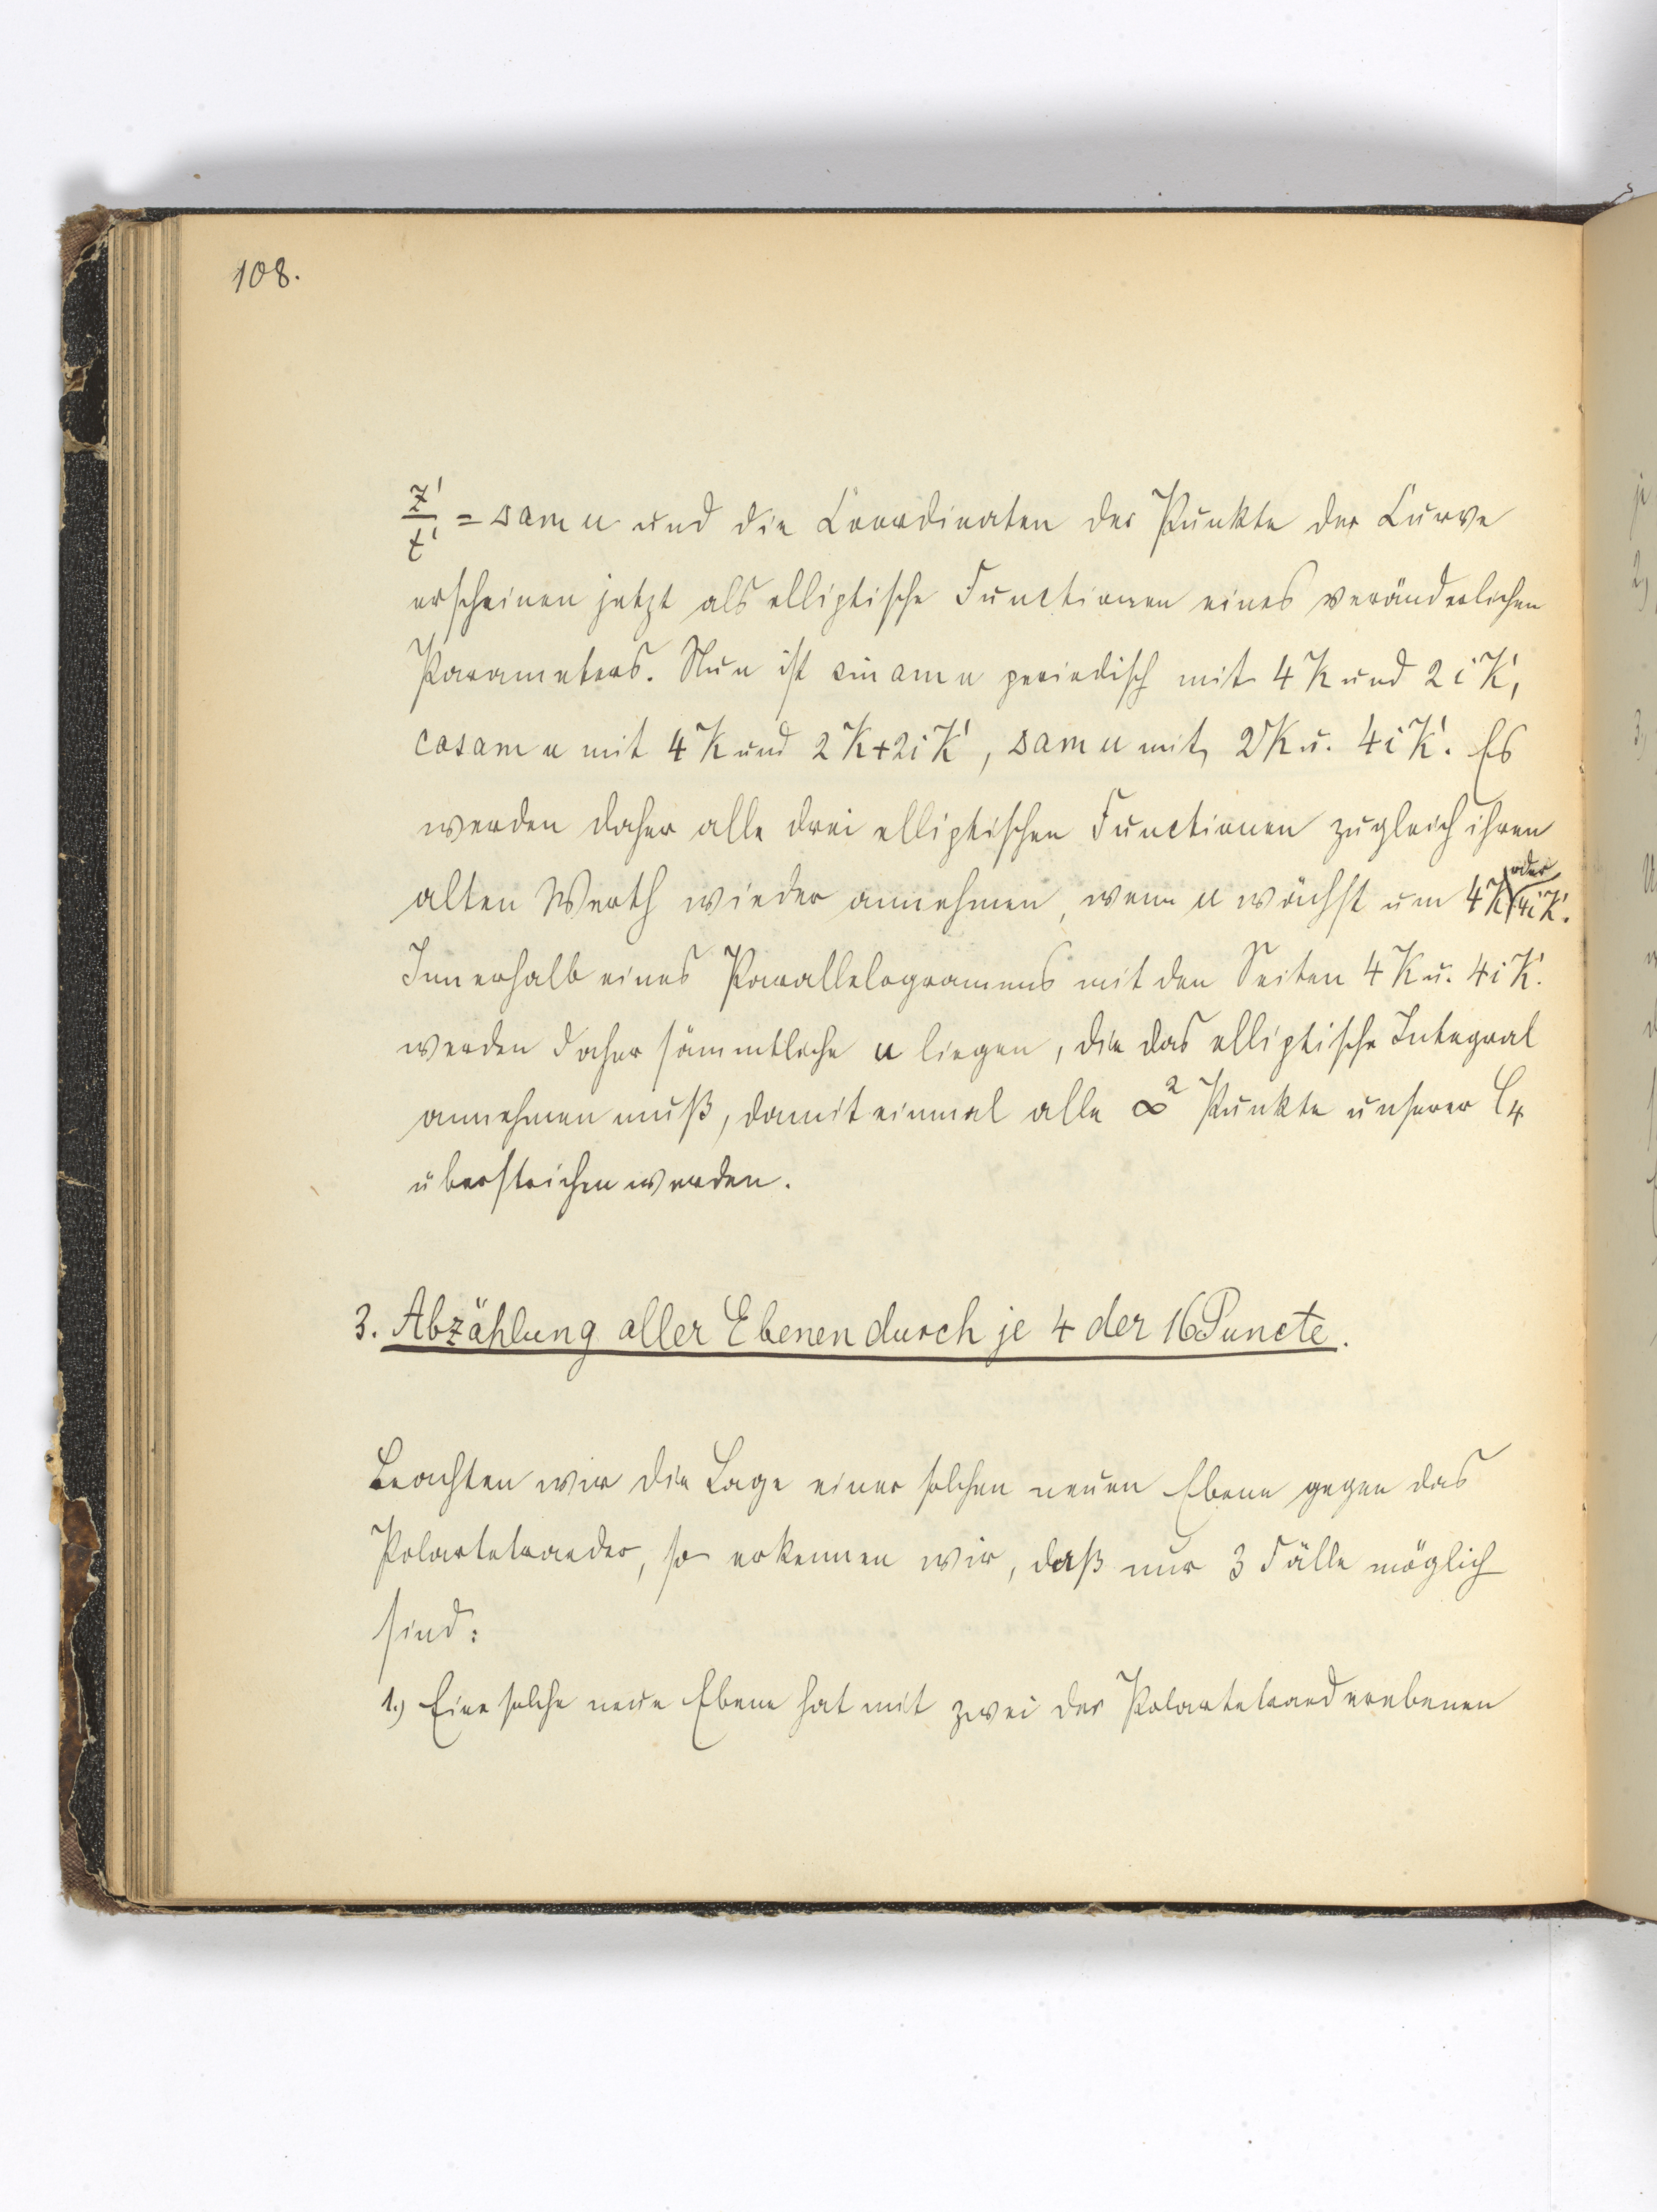 108.
z'/t' = Δ am u und die Coordinaten der Punkte der Curve
erscheinen jetzt als elliptische Functionen eines veränderlichen
Parameters. Nun ist sin am u periodisch mit 4 K und 2 i K',
cos am u mit 4 K und 2 K + 2 i K', Δ am u mit 2 K u. 4 i K'. Es
werden daher alle drei elliptischen Functionen zugleich ihren
alten Werth wieder annehmen, wenn u wächst um 4 K oder 4 i K'.
Innerhalb eines Parallelogramms mit den Seiten 4 K u. 4 i K'.
werden daher sämmtliche u liegen, die das elliptische Integral
annehmen muß, damit einmal alle ∞² Punkte unserer C₄
überstrichen werden.
3. Abzählung aller Ebenen durch je 4 der 16 Puncte.
Beachten wir die Lage einer solchen neuen Ebene gegen das
Polartetraeder, so erkennen wir, daß nur 3 Fälle möglich
sind:
1.) Eine solche neue Ebene hat mit zwei der Polartetraederebenen